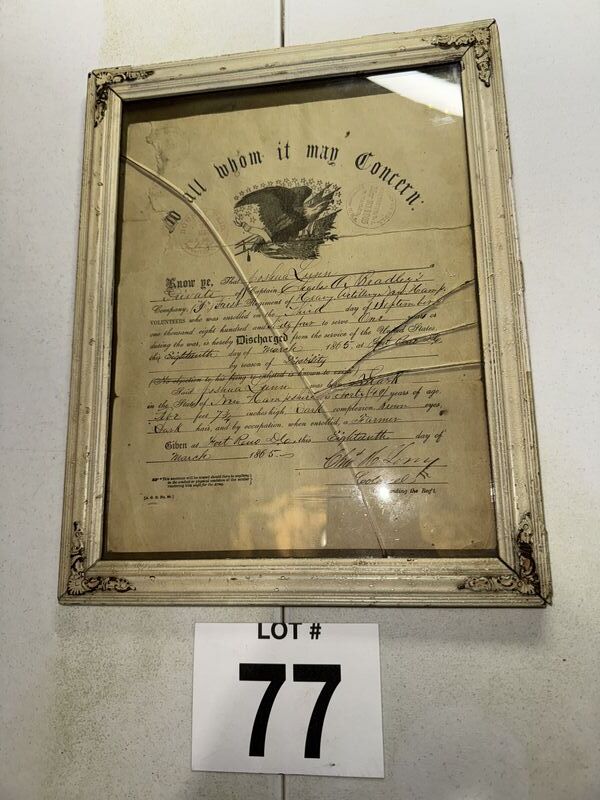 To all whom it may Concern:
Know ye, That Joshua Lunn
Private of Captain
Company, First Regiment of Heavy Artillery
VOLUNTEERS who was enrolled on the Third day of September
one thousand eight hundred and sixty four to serve One years or
during the war, is hereby Discharged from the service of the United States
this Eighteenth day of March 1865, at
by reason of Disability
(No objection to his being re-enlisted is known to exist.)
Said Joshua Lunn was born in
in the State of New Hampshire is Forty (40) years of age,
feet 7½ inches high, Dark complexion, eyes,
Dark hair, and by occupation, when enrolled, a Farmer
Given at Fort Reno D.C. this Eighteenth day of
March 1865
Colonel
nding the Reg't.
[A. G. O. No. 99.]
LOT #
77